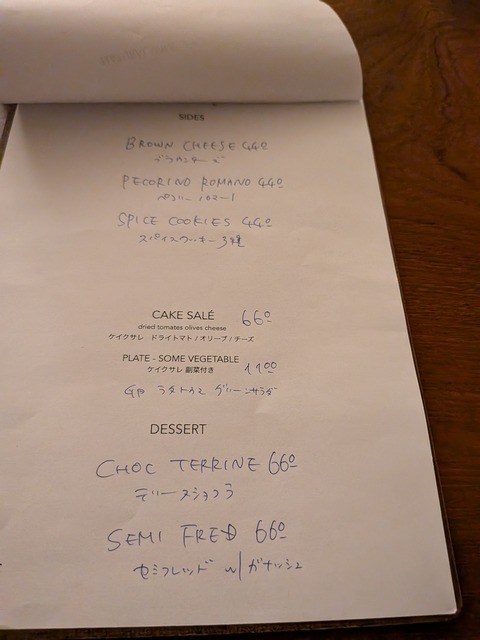 SIDES
BROWN CHEESE 440
ブラウンチーズ
PECORINO ROMANO 440
ペコリーノロマーノ
SPICE COOKIES 440
スパイスクッキー 3種
CAKE SALÉ 660
dried tomates olives cheese
ケイクサレ ドライトマト / オリーブ / チーズ
PLATE - SOME VEGETABLE
ケイクサレ 副菜付き 1100
ラタトゥユ グリーンサラダ
DESSERT
CHOC TERRINE 660
テリーヌショコラ
SEMI FRED 660
セミフレッド w/ ガナッシュ